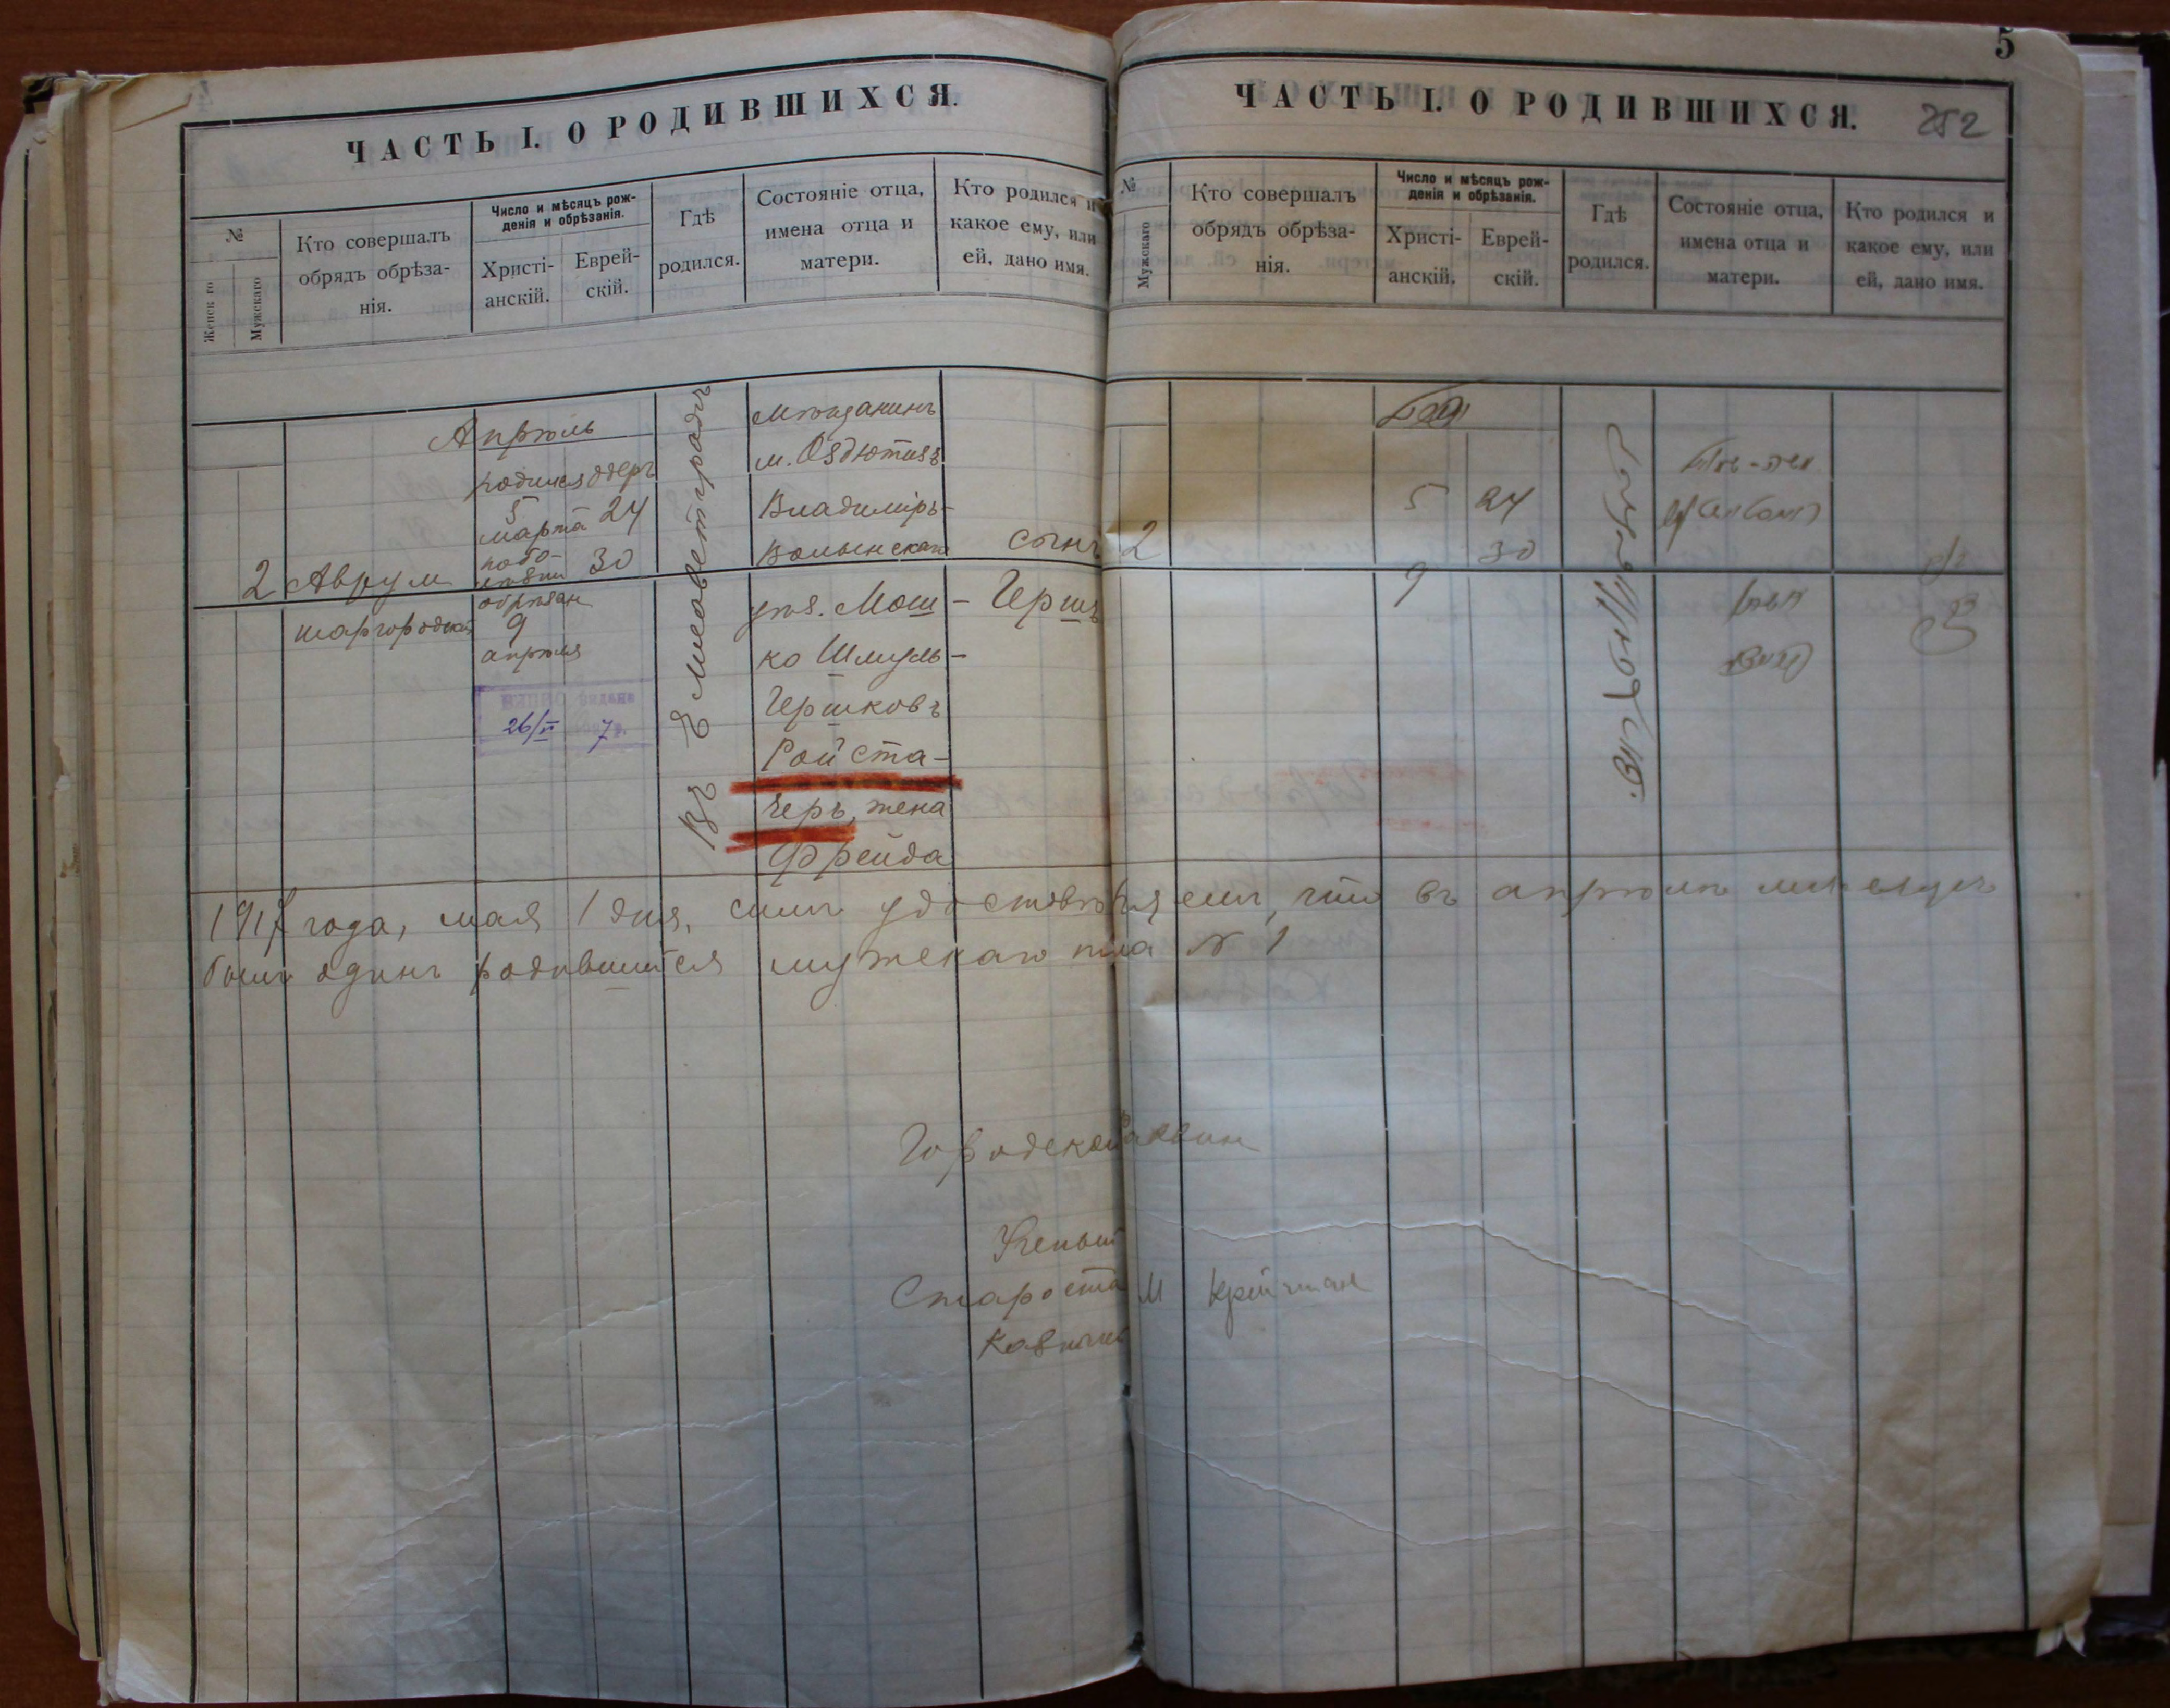 5
ЧАСТЬ I. О РОДИВШИХСЯ.
№
Женск го
Мужскаго
Кто совершалъ
обрядъ обрѣза-
нія.
Число и мѣсяцъ рож-
денія и обрѣзанія.
Христі-
анскій.
Еврей-
скій.
Гдѣ
родился.
Состояніе отца,
имена отца и
матери.
Кто родился и
какое ему, или
ей, дано имя.
Апрѣль
2
Аврум
шаргородский
родился Адеръ
5
марта 24
30
обрѣзан
9
апрѣля
видана
26/VI 7
Въ Елисаветградѣ
Мѣщанинъ
м. Оздютизъ
Владимірь-
Волынскаго
уѣз. Мош-
ко Шмуль-
Гершковъ
Ройста-
черъ, жена
Фрейда
сынъ
Гершъ
1917 года, мая 1 дня, симъ удостовѣряемъ, что въ апрѣлѣ мѣсяцѣ
былъ одинъ родившійся мужскаго пола № 1
Городской Раввин
Ученый
Староста М Крейчман
Казначей
ЧАСТЬ I. О РОДИВШИХСЯ.
252
№
Мужскаго
Кто совершалъ
обрядъ обрѣза-
нія.
Число и мѣсяцъ рож-
денія и обрѣзанія.
Христі-
анскій.
Еврей-
скій.
Гдѣ
родился.
Состояніе отца,
имена отца и
матери.
Кто родился и
какое ему, или
ей, дано имя.
2
5 24
9 30